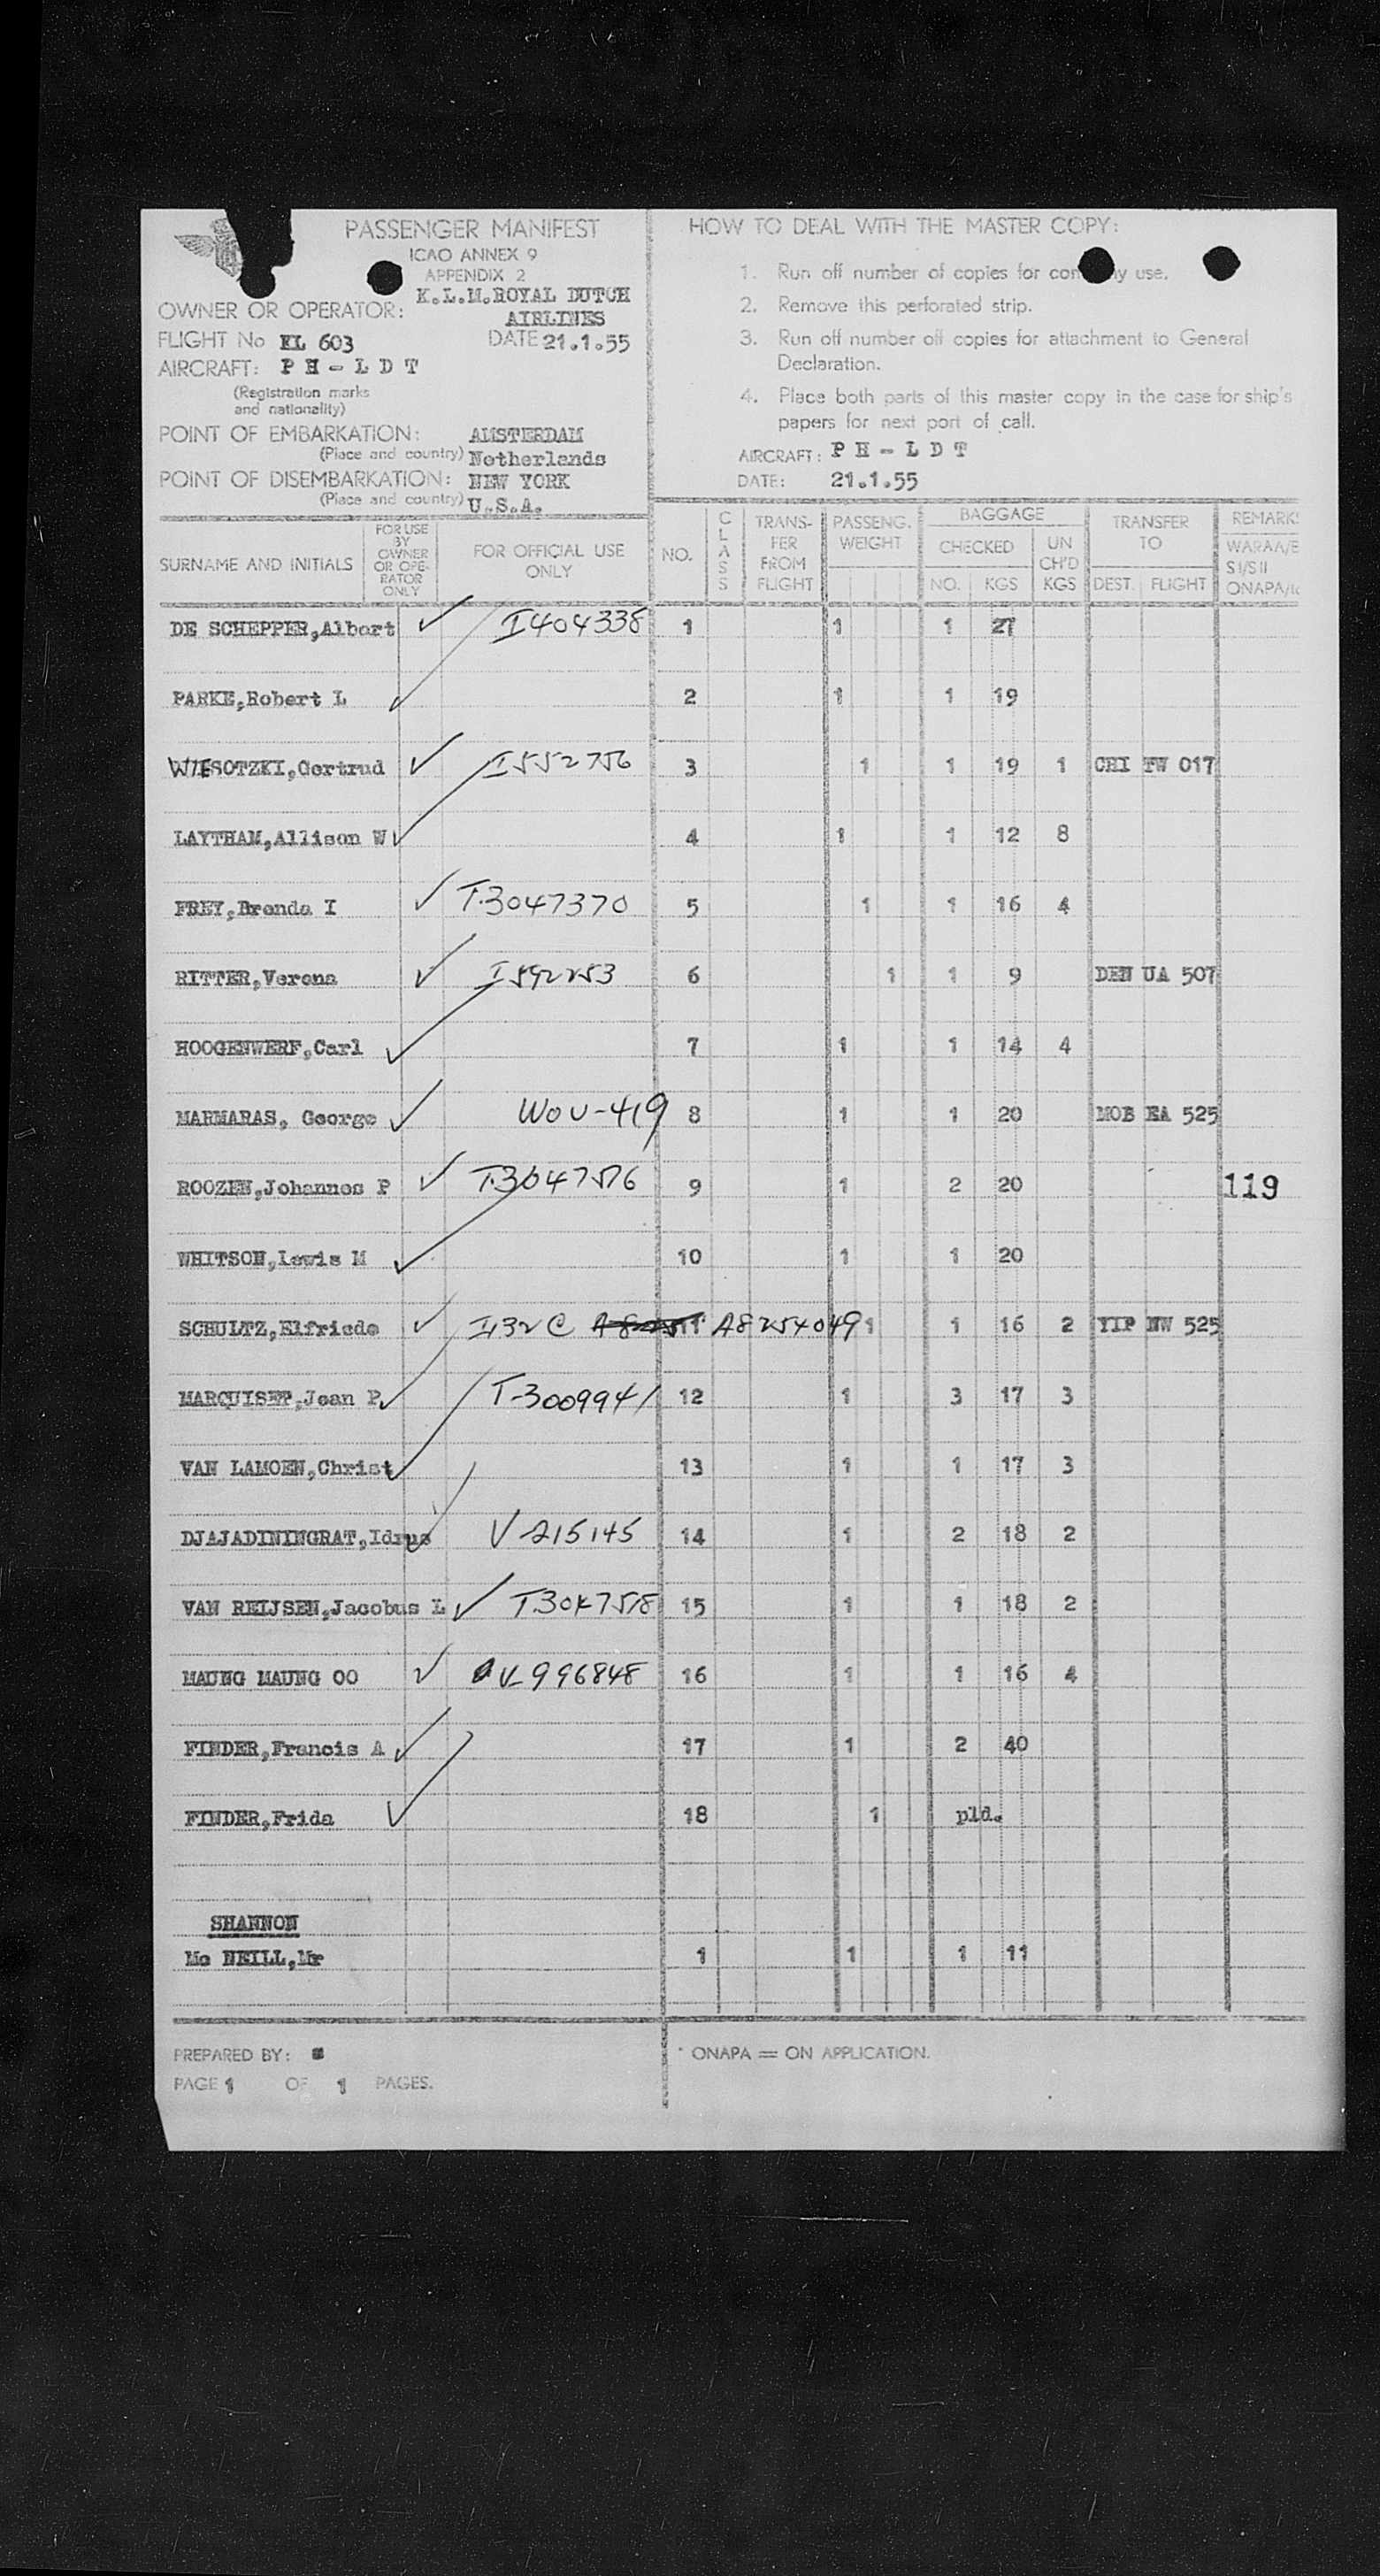 PASSENGER MANIFEST
ICAO ANNEX 9
APPENDIX 2
OWNER OR OPERATOR: K.L.M.ROYAL DUTCH
AIRLINES
FLIGHT No KL 603 DATE 21.1.55
AIRCRAFT: P H - L D T
(Registration marks
and nationality)
POINT OF EMBARKATION: AMSTERDAM
(Place and country) Netherlands
POINT OF DISEMBARKATION: NEW YORK
(Place and country) U.S.A.
HOW TO DEAL WITH THE MASTER COPY:
1. Run off number of copies for use.
2. Remove this perforated strip.
3. Run off number off copies for attachment to General
Declaration.
4. Place both parts of this master copy in the case for ship's
papers for next port of call.
AIRCRAFT: P H - L D T
DATE: 21.1.55
SURNAME AND INITIALS FOR USE BY OWNER OR OPE- RATOR ONLY FOR OFFICIAL USE ONLY NO. CLASS TRANS- FER FROM FLIGHT PASSENG. WEIGHT BAGGAGE CHECKED NO. KGS UN CH'D KGS TRANSFER TO DEST. FLIGHT REMARKS WARAA/E SI/SII ONAPA/
DE SCHEPPER,Albert I404338 1 1 1 27
PARKE,Robert L 2 1 1 19
WIESOTZKI,Gertrud I552756 3 1 1 19 1 CHI TW 017
LAYTHAM,Allison W 4 1 1 12 8
FREY,Brenda I T-3047370 5 1 1 16 4
RITTER,Verena I592253 6 1 1 9 DEN UA 507
HOOGENWERF,Carl 7 1 1 14 4
MARMARAS, George WOU-419 8 1 1 20 MOB EA 525
ROOZEN,Johannes P T-3047576 9 1 2 20 119
WHITSON,Lewis M 10 1 1 20
SCHULTZ,Elfriede I132C A8254049 1 1 16 2 YIP NW 525
MARQUISET,Jean P T-3009941 12 1 3 17 3
VAN LAMOEN,Christ 13 1 1 17 3
DJAJADININGRAT,Idrus V-215145 14 1 2 18 2
VAN REIJSEN,Jacobus L T3047518 15 1 1 18 2
MAUNG MAUNG OO V-996848 16 1 1 16 4
FINDER,Francis A 17 1 2 40
FINDER,Frida 18 1 pld.
SHANNON
Mc NEILL,Mr 1 1 1 11
PREPARED BY:
PAGE 1 OF 1 PAGES.
* ONAPA = ON APPLICATION.